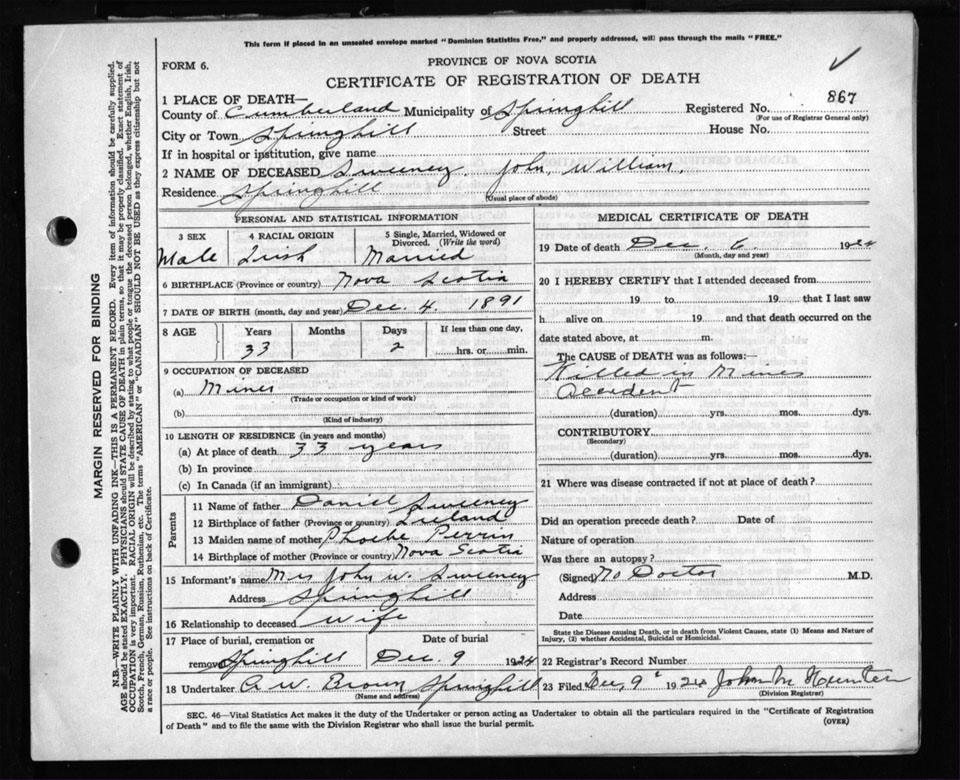 This form if placed in an unsealed envelope marked "Dominion Statistics Free," and properly addressed, will pass through the mails "FREE."
FORM 6.
PROVINCE OF NOVA SCOTIA
CERTIFICATE OF REGISTRATION OF DEATH
1 PLACE OF DEATH—
County of Cumberland Municipality of Springhill Registered No. 867
(For use of Registrar General only)
City or Town Springhill Street House No.
If in hospital or institution, give name
2 NAME OF DECEASED Sweeney. John, William.
Residence Springhill
(Usual place of abode)
PERSONAL AND STATISTICAL INFORMATION
3 SEX 4 RACIAL ORIGIN 5 Single, Married, Widowed or
Divorced. (Write the word)
Male Irish Married
6 BIRTHPLACE (Province or country) Nova Scotia
7 DATE OF BIRTH (month, day and year) Dec. 4. 1891
8 AGE Years Months Days If less than one day,
33 2 hrs. or min.
9 OCCUPATION OF DECEASED
(a) Miner
(Trade or occupation or kind of work)
(b)
(Kind of industry)
10 LENGTH OF RESIDENCE (in years and months)
(a) At place of death 33 years
(b) In province
(c) In Canada (if an immigrant)
Parents
11 Name of father Daniel Sweeney
12 Birthplace of father (Province or country) Ireland
13 Maiden name of mother Phoebe Perrin
14 Birthplace of mother (Province or country) Nova Scotia
15 Informant's name Mrs John W. Sweeney
Address Springhill
16 Relationship to deceased Wife
17 Place of burial, cremation or Date of burial
removal Springhill Dec. 9 1924
18 Undertaker A. W. Brown Springhill
(Name and address)
MEDICAL CERTIFICATE OF DEATH
19 Date of death Dec. 6. 1924
(Month, day and year)
20 I HEREBY CERTIFY that I attended deceased from
19 to 19 that I last saw
h alive on 19 and that death occurred on the
date stated above, at m.
The CAUSE of DEATH was as follows:—
Killed in Mines
Accident
(duration) yrs. mos. dys.
CONTRIBUTORY
(Secondary)
(duration) yrs. mos. dys.
21 Where was disease contracted if not at place of death?
Did an operation precede death? Date of
Nature of operation
Was there an autopsy?
(Signed) No Doctor M.D.
Address
Date
State the Disease causing Death, or in death from Violent Causes, state (1) Means and Nature of
Injury, (2) whether Accidental, Suicidal or Homicidal.
22 Registrar's Record Number
23 Filed Dec, 9 1924 John M Hunter
(Division Registrar)
SEC. 46—Vital Statistics Act makes it the duty of the Undertaker or person acting as Undertaker to obtain all the particulars required in the "Certificate of Registration
of Death" and to file the same with the Division Registrar who shall issue the burial permit.
(OVER)
MARGIN RESERVED FOR BINDING
N.B.—WRITE PLAINLY WITH UNFADING INK—THIS IS A PERMANENT RECORD. Every item of information should be carefully supplied.
AGE should be stated EXACTLY. PHYSICIANS should STATE CAUSE OF DEATH in plain terms, so that it may be properly classified. Exact statement of
OCCUPATION is very important. RACIAL ORIGIN will be described by stating to what people or tongue the deceased person belonged, whether English, Irish,
Scotch, French, German, Russian, Ruthenian, etc. The terms "AMERICAN" or "CANADIAN" SHOULD NOT BE USED as they express citizenship but not
a race or people. See instructions on back of Certificate.